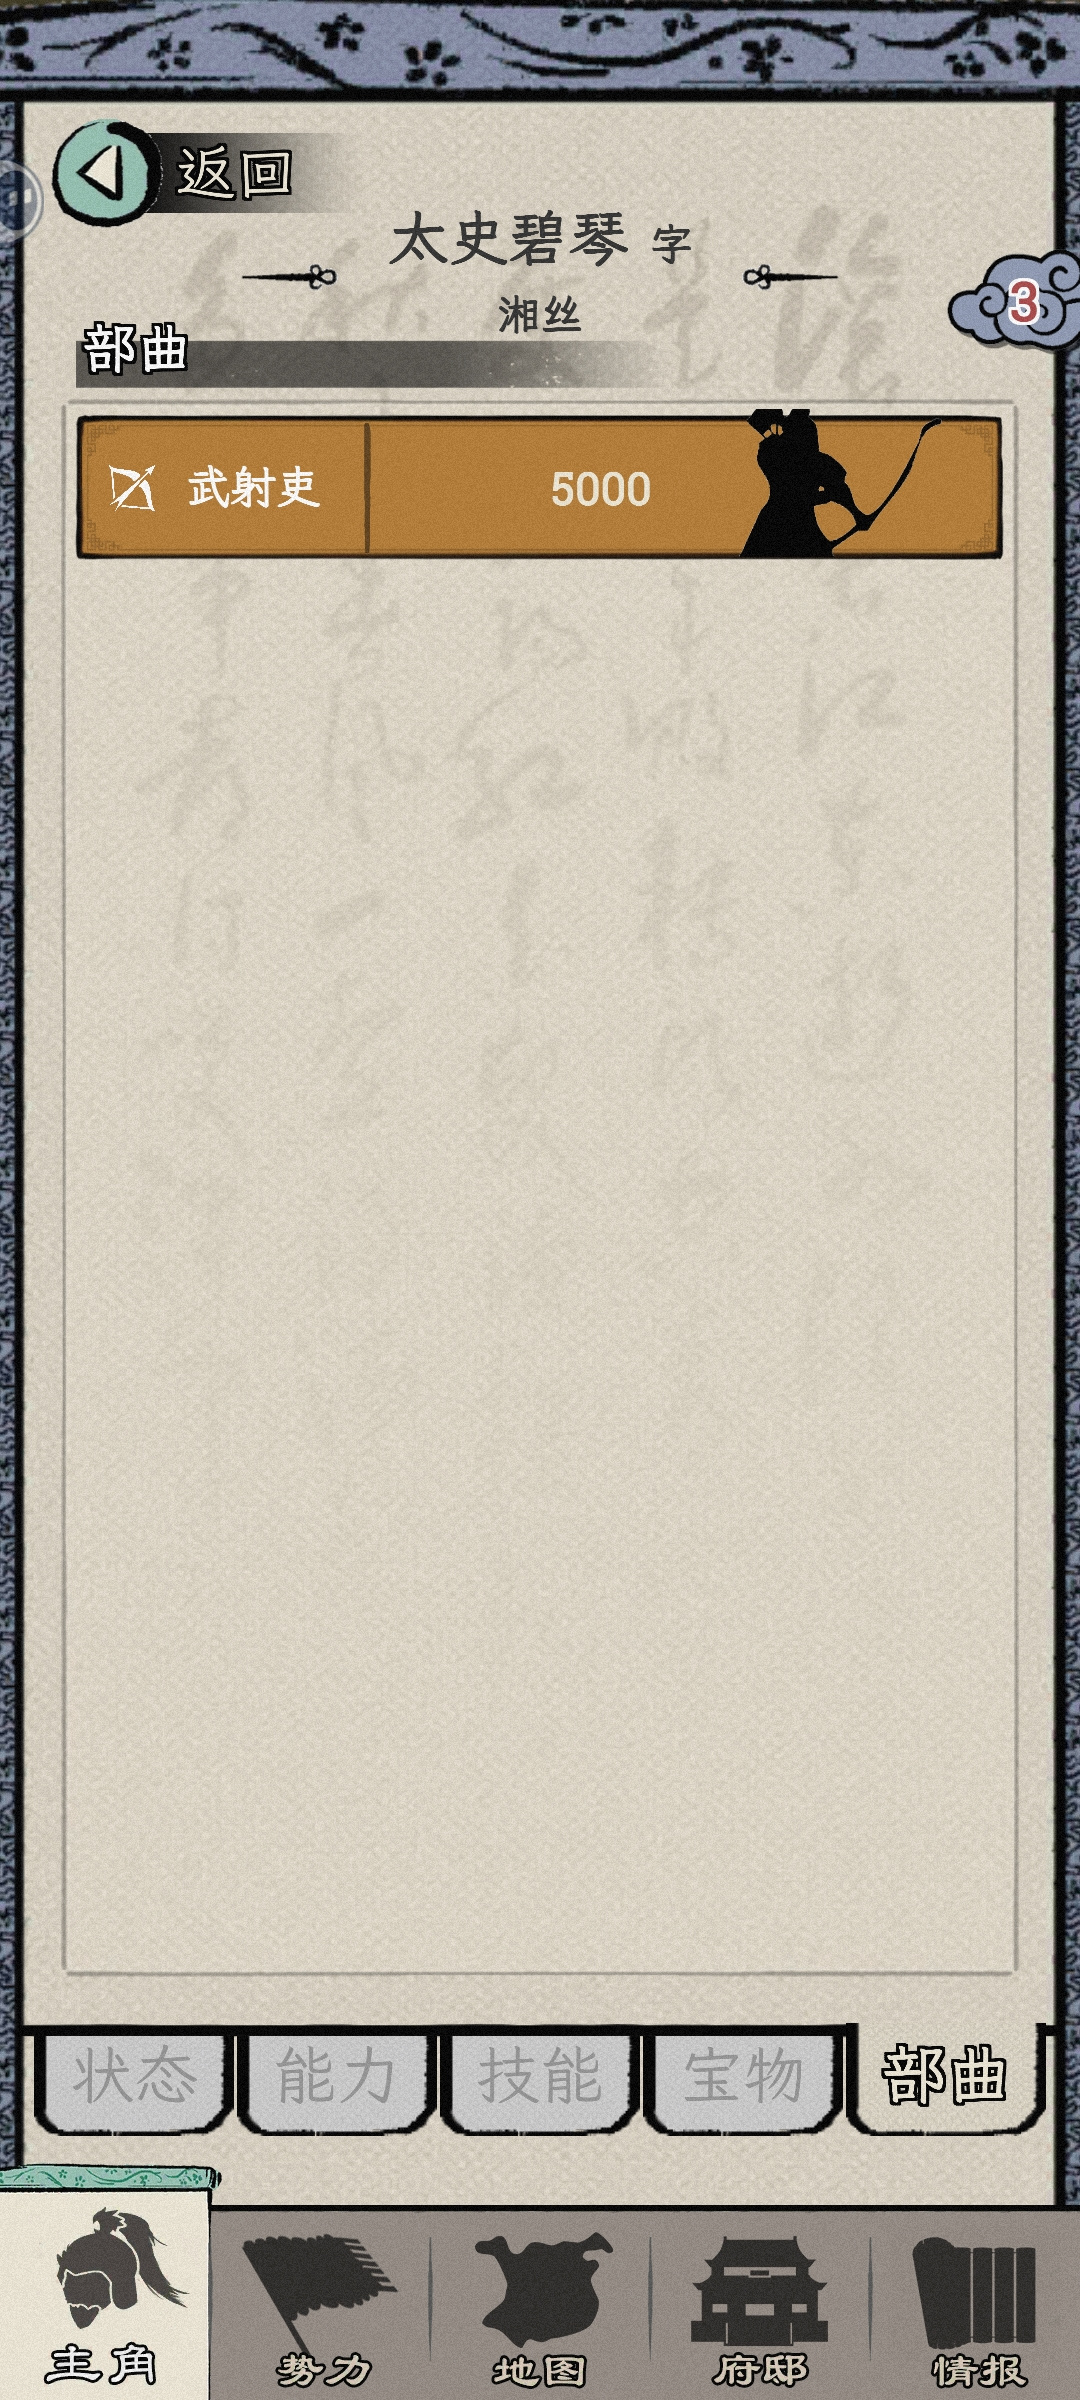 返回
太史碧琴 字
湘丝
3
部曲
武射吏 5000
状态 能力 技能 宝物 部曲
主角 势力 地图 府邸 情报